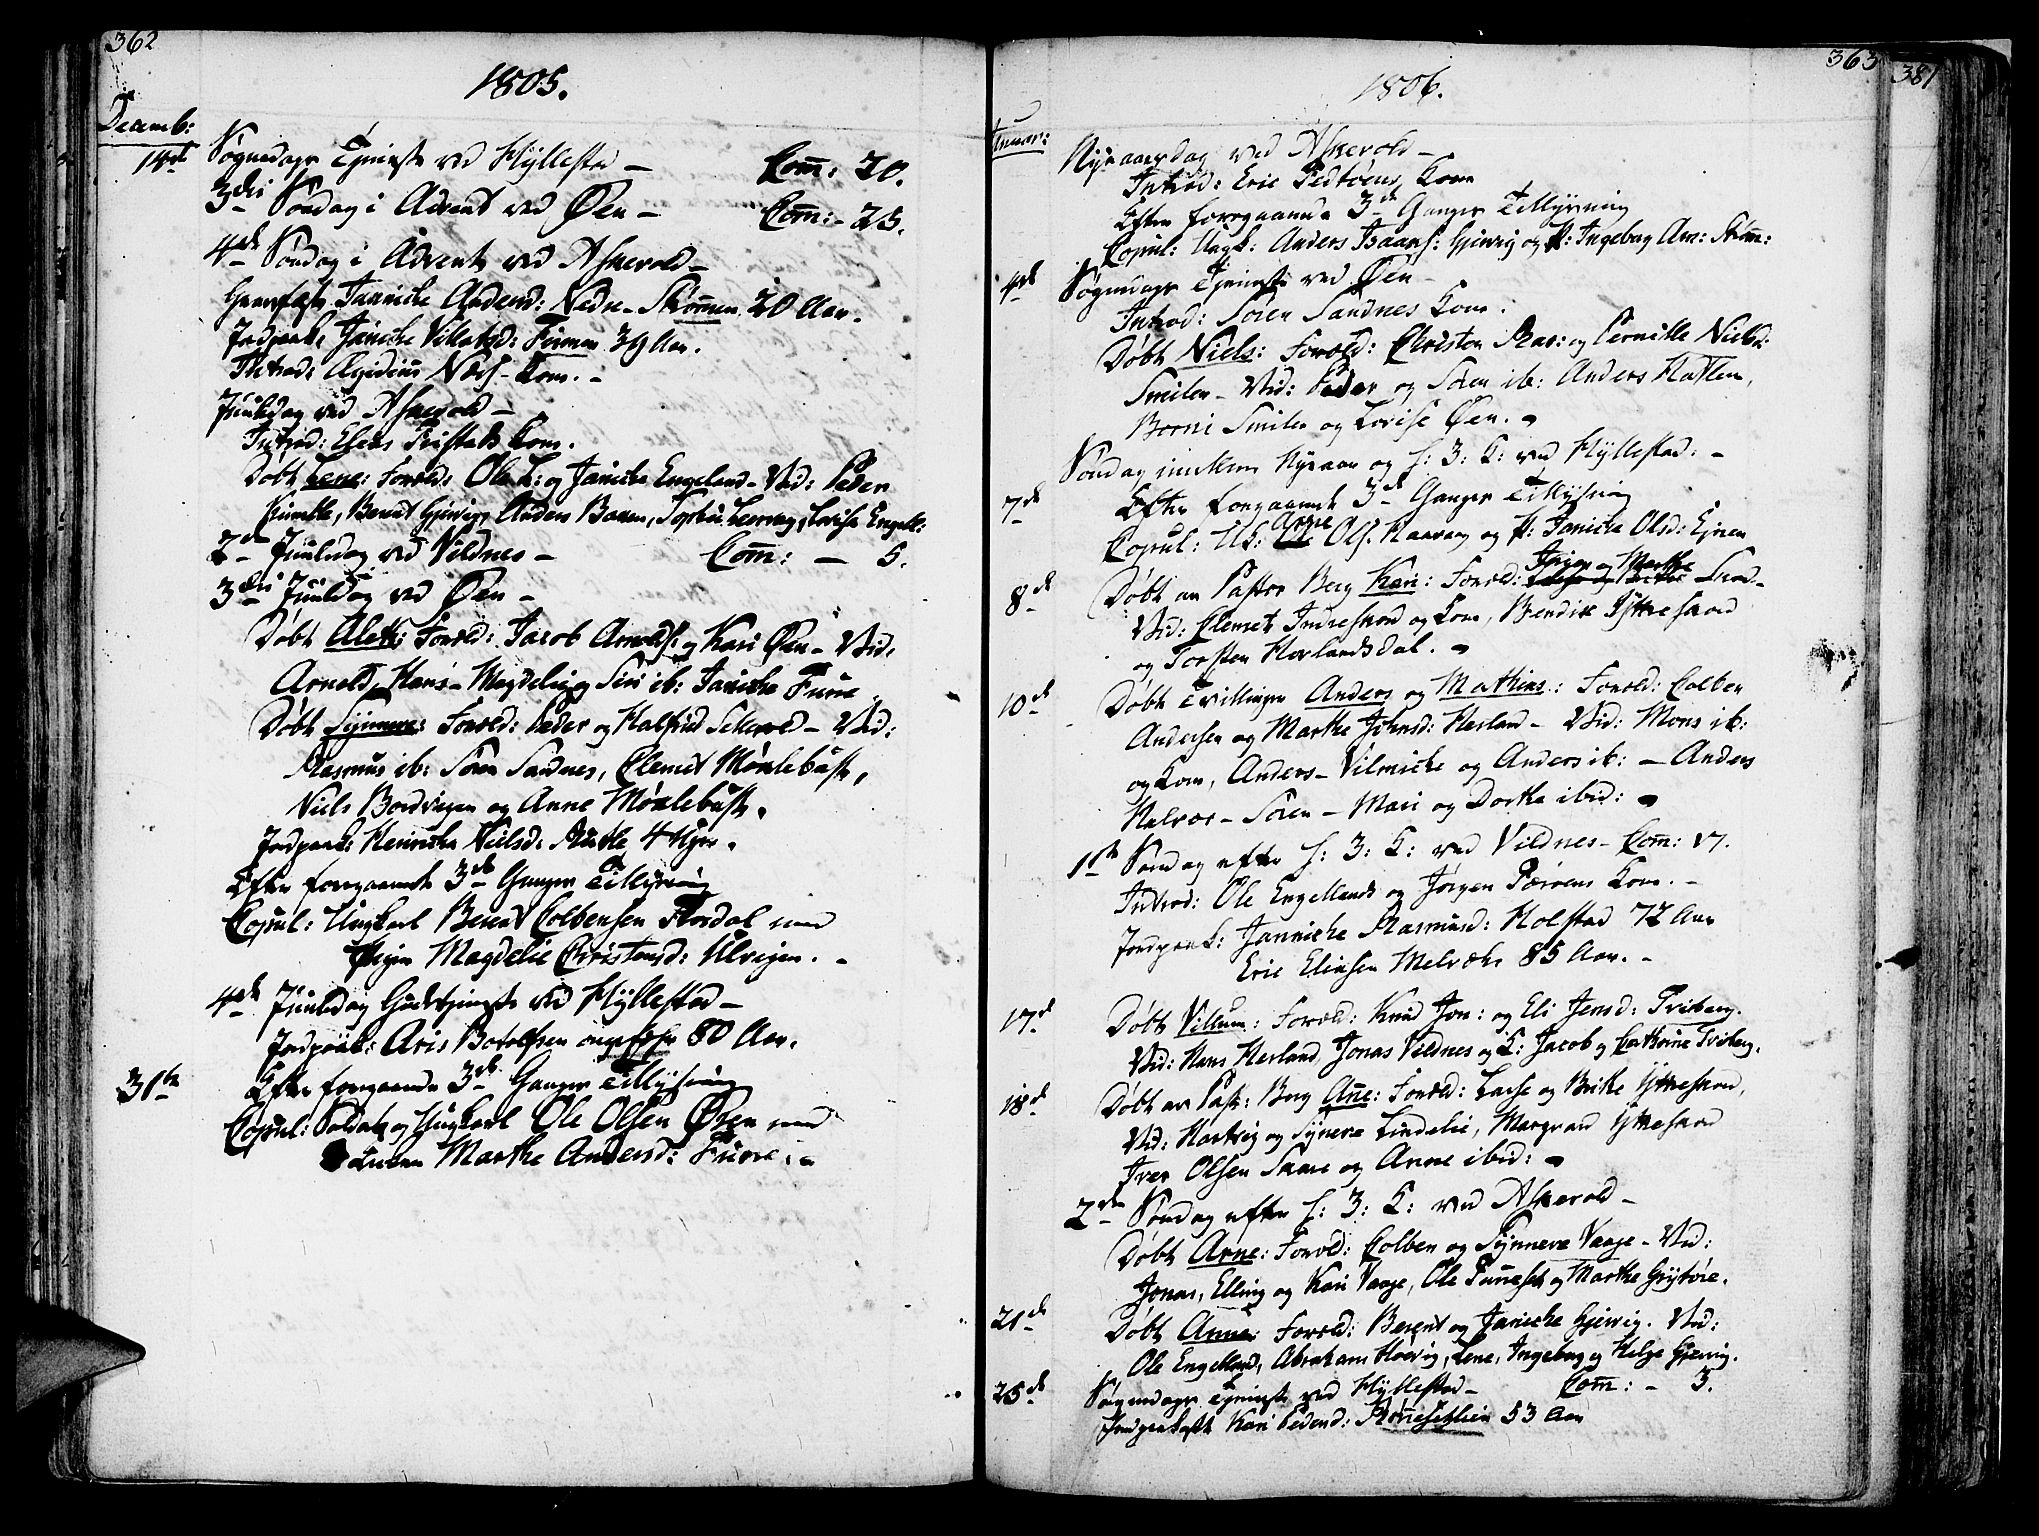 362
1805.
Decemb:
14de Søgnedags Tjeneste ved Hyllestad — Com̄: 20.
3die Søndag i Advent ved Øen — Com̄: - 25.
4de Søndag i Advent ved Askevold —
Janniche Andersd: Nedre-Strømmen 20 Aar.
Jordpaak: Janiche Villatsd: 39 Aar.
Introd: Ægidius Næss Kone. -
Juuledag ved Askevold —
Introd: Elias Kone.
Døbt Lene: Foræld: Ole L: og Janiche Engeland - Vid: Peder
Berent Gjervig, Anders Lovise Engell:
2den Juuledag ved Vildnes — Com̄: — 5.
3die Juuledag ved Øen —
Døbt Foræld: Jacob Arnoldss: og Kari Øen - Vid:
Arnold, Hans - Magdeli og Siri ib: Janiche Furre
Døbt Synneve: Foræld: Peder og - Vid:
Rasmus ib: Søren Sandnes, Clemet Mønlebust,
Niels Bordvigen og Anne Mønlebust.
Jordpaak: Henriche Nielsd: 4 Uger.
Efter foregaaende 3de Ganges Tillysning
Copul: Ungkarl Berent Colbensen Flordal med
Pigen Magdelie Christensd: Ulvejen. -
4de Juuledag Gudstjeneste ved Hyllestad —
Jordpaak: Aris Botolfsen ongefehr 80 Aar.
31te Efter foregaaende 3de Ganges Tillysning
Copul: Soldat og Ungkarl Ole Olsen Øren med
Marthe Andersd: Furre. -
363
381
1806.
Januar:
Nytaarsdag ved Askevold —
Introd: Eric Kone
Efter foregaaende 3de Ganges Tillysning
Copul: Ungk: Anders Isaacs: Gjervig og P: Ingeborg An: Strøm:
4de Søgnedags Tjeneste ved Øen —
Introd: Søren Sandnes Kone.
Døbt Niels: Foræld: Christen Ras: og Pernille Nielsd:
Smilen - Vid: Peder og Søren ib: Anders Hatlen,
Smilen og Lovise Øen. -
Søndag imellem Nytaar og h: 3: K: ved Hyllestad. -
7de Efter foregaaende 3de Ganges Tillysning
Copul: Uk: Arne Ols. og P: Janiche Olsd:
8de Døbt av Pastor Berg Kari: Foræld: Iver og Marthe
Vid: Clemet Indreskord og Kone, Bendix Yttreskord
og Torsten Horlandsdal. -
10de Døbt Tvillinger Anders og Mathias: Foræld: Colben
Andersen og Marthe Johnsd: Herland - Vid: Mons ib:
og Kone, Anders - Vilmiche og Anders ib: — Anders
Halvor - Søren - Mari og Dorthe ibid: -
1ste Søndag efter h: 3: K: ved Vildnes - Com̄: 17.
Introd: Ole Engellands og Jørgen Kone. -
Jordpaak: Janniche Rasmusd: Holstad 72 Aar
Eric Eliasen 85 Aar. -
17de Døbt Villum: Foræld: Knud Jon: og Eli Jensd: Tviberg.
Vid: Hans Herland, Jonas Vildnes og K: Jacob og Cathrine Tviberg.
18de Døbt av Past: Berg Anne: Foræld: Lasse og Brithe Yttreskord,
Vid: Hartvig og Syneve Lindelie, Yttreskord
Iver Olsen og Anne ibid: -
2den Søndag efter h: 3: K: ved Askevold —
Døbt Arne: Foræld: Colben og Synneve Vaage - Vid:
Jonas, Elling og Kari Vaage, Ole og Marthe Grytøre.
21de Døbt Anne: Foræld: Berent og Janiche Gjervig. Vid:
Ole Engelland, Abraham Lene, Ingeborg og Helge Gjervig.
25de Søgnedags Tjeneste ved Hyllestad — Com̄: - 3.
Jordpaakaste Kari Pedersd: 53 Aar